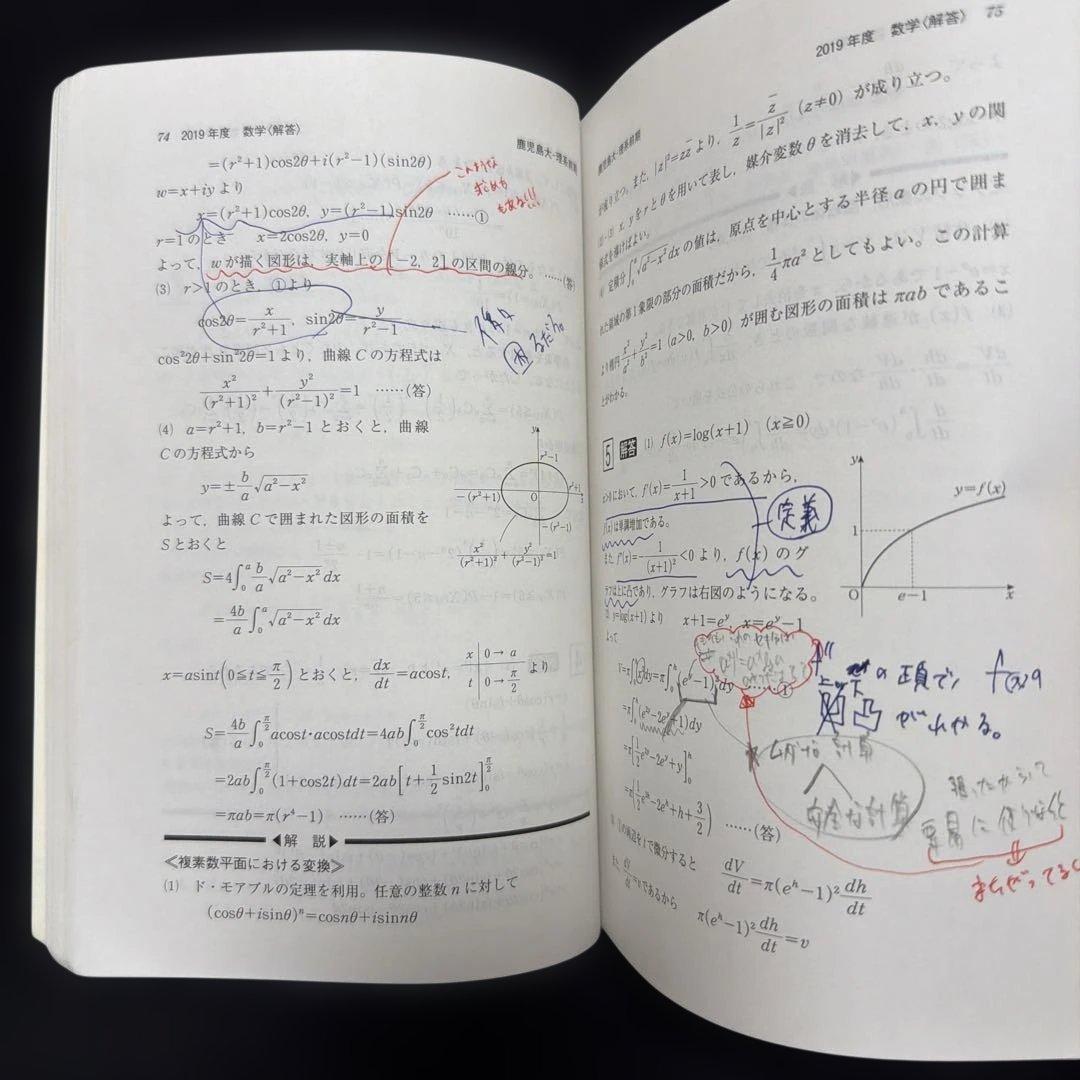 74 2019年度 数学〈解答〉
鹿児島大-理系前期
=(r²+1)cos2θ+i(r²−1)(sin2θ)
w=x+iy より
x=(r²+1)cos2θ, y=(r²−1)sin2θ ……①
こんような
求め方
もある!!!
r=1のとき x=2cos2θ, y=0
よって, wが描く図形は, 実軸上の[−2, 2]の区間の線分。……(答)
(3) r>1のとき, ①より
cos2θ=x/(r²+1), sin2θ=y/(r²−1)
困るだろ。
cos²2θ+sin²2θ=1より, 曲線Cの方程式は
x²/(r²+1)²+y²/(r²−1)²=1 ……(答)
(4) a=r²+1, b=r²−1とおくと, 曲線
Cの方程式から
y=±b/a√(a²−x²)
よって, 曲線Cで囲まれた図形の面積を
Sとおくと
S=4∫₀ᵃ b/a√(a²−x²)dx
=4b/a∫₀ᵃ√(a²−x²)dx
y
r²−1
−(r²+1)
O
r²+1
x
−(r²−1)
x²/(r²+1)²+y²/(r²−1)²=1
x=asint(0≦t≦π/2)とおくと, dx/dt=acost, x 0→a より
t 0→π/2
S=4b/a∫₀^(π/2)acost・acostdt=4ab∫₀^(π/2)cos²tdt
=2ab∫₀^(π/2)(1+cos2t)dt=2ab[t+1/2 sin2t]₀^(π/2)
=πab=π(r⁴−1) ……(答)
◀解 説▶
≪複素数平面における変換≫
(1) ド・モアブルの定理を利用。任意の整数nに対して
(cosθ+isinθ)ⁿ=cosnθ+isinnθ
2019年度 数学〈解答〉 75
鹿児島大-理系前期
が成り立つ。また, |z|²=zz̄より, 1/z=z̄/|z|² (z≠0) が成り立つ。
(2)・(3) x, yをrとθを用いて表し, 媒介変数θを消去して, x, yの関
係式を導けばよい。
(4) 定積分∫₀ᵃ√(a²−x²)dxの値は, 原点を中心とする半径aの円で囲ま
れた領域の第1象限の部分の面積だから, 1/4πa²としてもよい。この計算
より楕円x²/a²+y²/b²=1 (a>0, b>0) が囲む図形の面積はπabであるこ
とがわかる。
5 解答 (1) f(x)=log(x+1) (x≧0)
x>0において, f′(x)=1/(x+1)>0であるから,
f(x)は単調増加である。
定義
また f″(x)=−1/(x+1)²<0より, f(x)のグ
ラフは上に凸であり, グラフは右図のようになる。
y
y=f(x)
1
O
e−1
x
(2) y=log(x+1)より x+1=eʸ, x=eʸ−1
よって
V=π∫₀ʰx²dy=π∫₀ʰ(eʸ−1)²dy ……①
=π∫₀ʰ(e²ʸ−2eʸ+1)dy
=π[1/2e²ʸ−2eʸ+y]₀ʰ
=π(1/2e²ʰ−2eʰ+h+3/2) ……(答)
f″
の正負で f(x)の
凸がわかる。
ムダな計算
安全な計算
習ったからって
安易に使うなよと
まちがってるし
(3) ①の両辺をtで微分すると dV/dt=π(eʰ−1)²dh/dt
また dV/dt=vであるから π(eʰ−1)²dh/dt=v